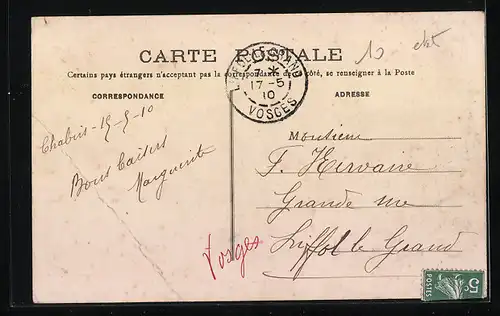 CARTE POSTALE
Certains pays étrangers n'acceptant pas la correspondance de ce côté, se renseigner à la Poste
CORRESPONDANCE
ADRESSE
LIFFOL-LE-GRAND
7 *
17-5
10
VOSGES
10
Chabris - 15-5-10
Bons baisers
Marguerite
Monsieur
F. Hervaine
Grande rue
Liffol le Grand
Vosges
5c
POSTES